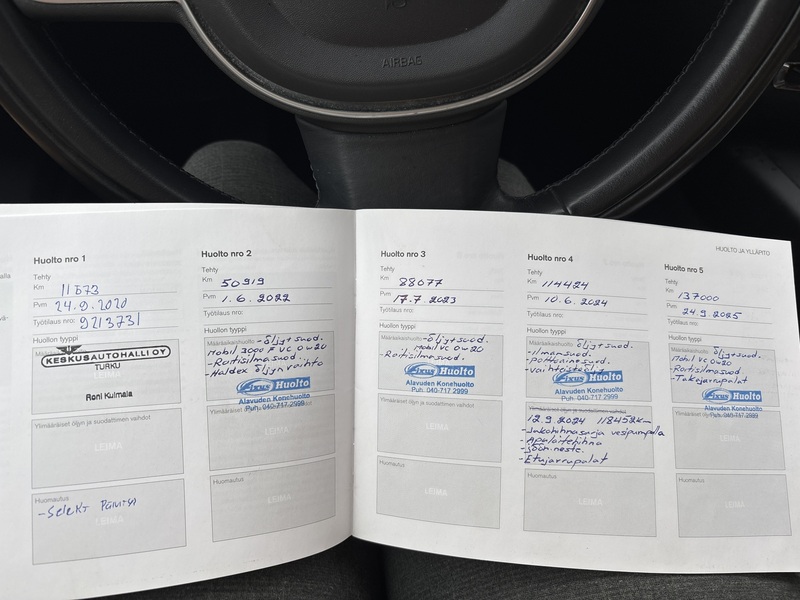 AIRBAG
HUOLTO JA YLLÄPITO
Huolto nro 1
Tehty
Km 11573
Pvm 24.9.2020
Työtilaus nro: 9213731
Huollon tyyppi
KESKUSAUTOHALLI OY
TURKU
Roni Kulmala
Ylimääräiset öljyn ja suodattimen vaihdot
LEIMA
Huomautus
-Selekt Päivitys
LEIMA
Huolto nro 2
Tehty
Km 50919
Pvm 1.6.2022
Työtilaus nro:
Huollon tyyppi
-Öljyt+suod.
Mobil 3000 F VC 0W20
-Raitisilmasuod.
-Haldex öljyn vaihto
Ixus Huolto
Alavuden Konehuolto
Puh. 040-717 2999
Ylimääräiset öljyn ja suodattimen vaihdot
LEIMA
Huomautus
LEIMA
Huolto nro 3
Tehty
Km 88077
Pvm 17.7.2023
Työtilaus nro:
Huollon tyyppi
-Öljyt+suod.
Mobil VC 0W20
-Raitisilmasuod.
Ixus Huolto
Alavuden Konehuolto
Puh. 040-717 2999
Ylimääräiset öljyn ja suodattimen vaihdot
LEIMA
Huomautus
LEIMA
Huolto nro 4
Tehty
Km 114424
Pvm 10.6.2024
Työtilaus nro:
Huollon tyyppi
-Öljyt+suod.
-Ilmansuod.
Ixus Huolto
Alavuden Konehuolto
Puh. 040-717 2999
Ylimääräiset öljyn ja suodattimen vaihdot
12.9.2024 118452km
-Jakohihnasarja vesipumpulla
-Apulaitehihna
-Jään.neste.
-Etujarrupalat
Huomautus
LEIMA
Huolto nro 5
Tehty
Km 137000
Pvm 24.9.2025
Työtilaus nro:
Huollon tyyppi
Öljyt+suod.
Mobil VC 0W20
-Raitisilmasuod.
-Takajarrupalat
Ixus Huolto
Alavuden Konehuolto
Puh. 040-717 2999
LEIMA
Huomautus
LEIMA